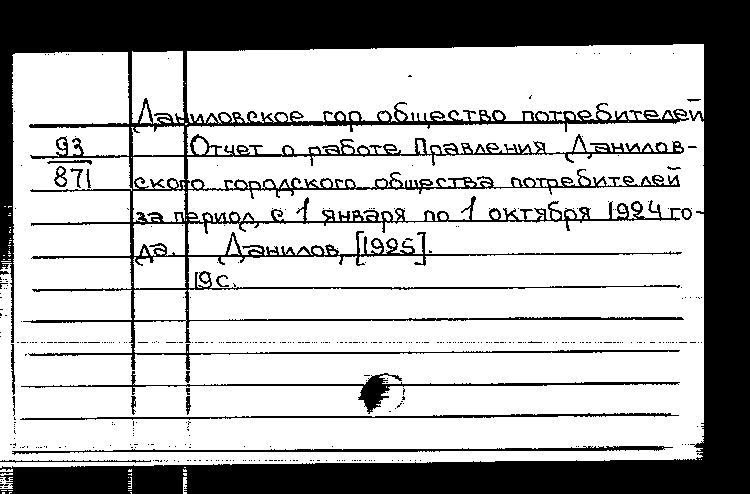 Даниловское гор общество потребителей
93
871
Отчет о работе Правления Данилов-
ского городского общества потребителей
за период с 1 января по 1 октября 1924 го-
да. Данилов, [1925].
19с.